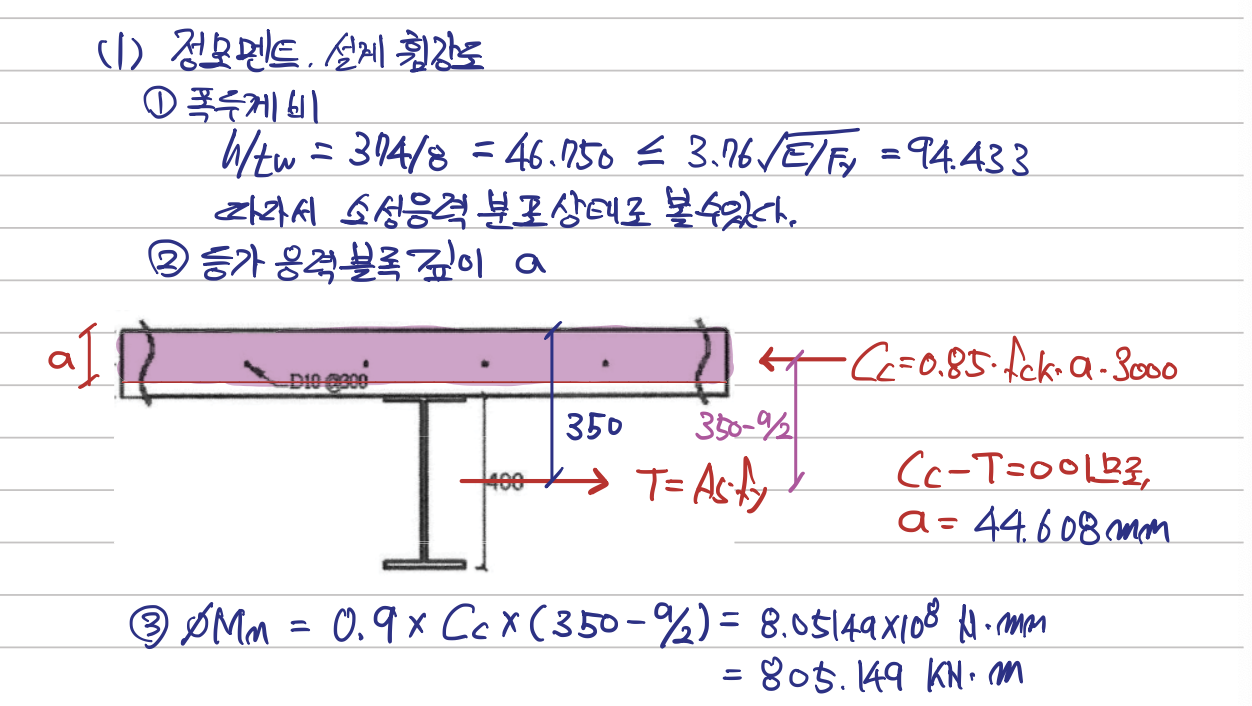 (1) 정모멘트. 설계 휨강도
① 폭두께비
h/tw = 374/8 = 46.750 ≤ 3.76√E/Fy = 94.433
따라서 소성응력 분포상태로 볼수있다.
② 등가 응력블록 깊이 a
a
D10 @300
Cc=0.85·fck·a·3000
350
350-a/2
400
T=As·fy
Cc-T=0 이므로,
a= 44.608mm
③ ØMn = 0.9 x Cc x (350-a/2) = 8.05149x10⁸ N·mm
= 805.149 KN·m